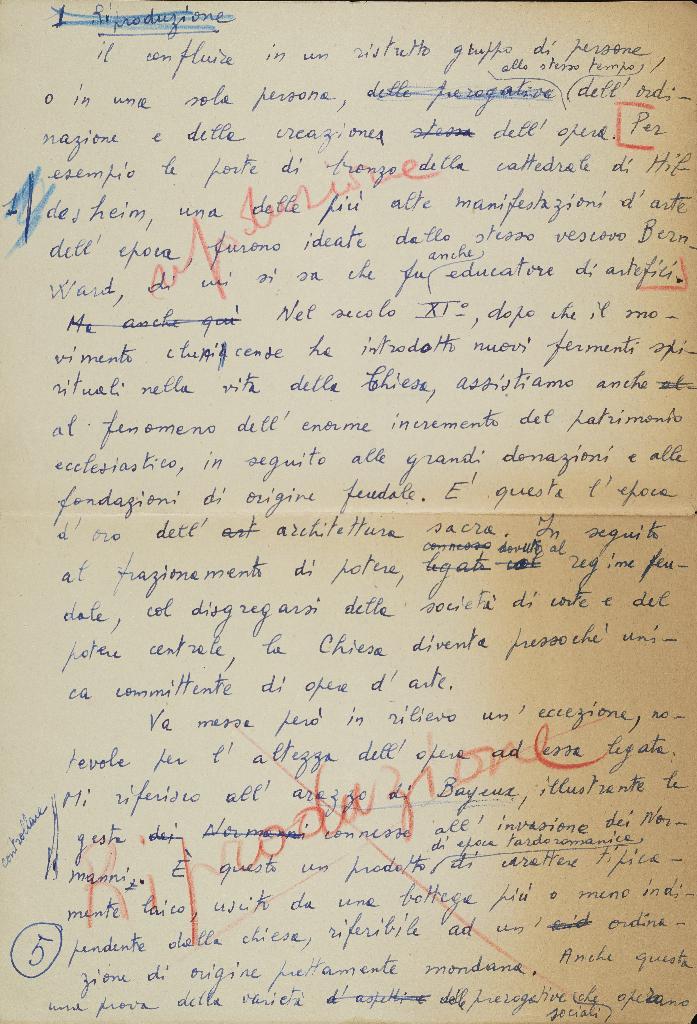 1 Riproduzione
il confluire in un ristretto gruppo di persone
allo stesso tempo,
o in una sola persona, delle prerogative dell'ordi-
nazione e della creazione stessa dell'opera. Per
esempio le porte di bronzo della cattedrale di Hil
riproduzione
1
desheim, una delle più alte manifestazioni d'arte
dell'epoca, furono ideate dallo stesso vescovo Bern-
anche
Ward, di cui si sa che fu educatore di artefici.
Ma anche qui Nel secolo XI°, dopo che il mo-
vimento cluniacense ha introdotto nuovi fermenti spi-
rituali nella vita della Chiesa, assistiamo anche al
al fenomeno dell'enorme incremento del patrimonio
ecclesiastico, in seguito alle grandi donazioni e alle
fondazioni di origine feudale. E' questa l'epoca
d'oro dell' art architettura sacra. In seguito
connesso dovuto al
al frazionamento di potere, legato col regime feu-
dale, col disgregarsi della società di corte e del
potere centrale, la Chiesa diventa pressoché uni-
ca committente di opere d'arte.
Va messa però in rilievo un'eccezione, no-
tevole per l'altezza dell'opera ad essa legata.
Riproduzione
Mi riferisco all'arazzo di Bayeux, illustrante le
controllare
gesta dei Normanni connesse all'invasione dei Nor-
di epoca tardoromanica,
manni. È questo un prodotto di carattere tipica-
mente laico, uscito da una bottega più o meno indi-
5
pendente dalla chiesa, riferibile ad un' ordina-
zione di origine prettamente mondana. Anche questa
una prova della varietà d'aspetti e delle prerogative che operano
sociali